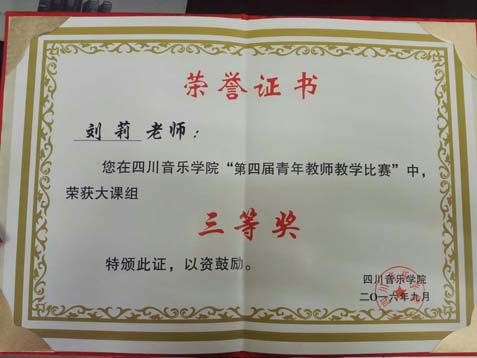 荣誉证书
刘莉老师：
您在四川音乐学院“第四届青年教师教学比赛”中，
荣获大课组
三等奖
特颁此证，以资鼓励。
四川音乐学院
二〇一六年九月